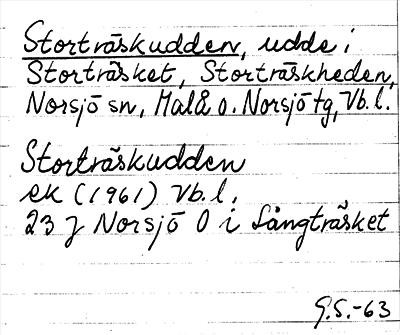 Storträskudden, udde i
Storträsket, Storträskheden,
Norsjö sn, Malå o. Norsjö tg, Vb. l.
Storträskudden
ek (1961) Vb. l.
23 J Norsjö O i Långträsket
G.S.-63